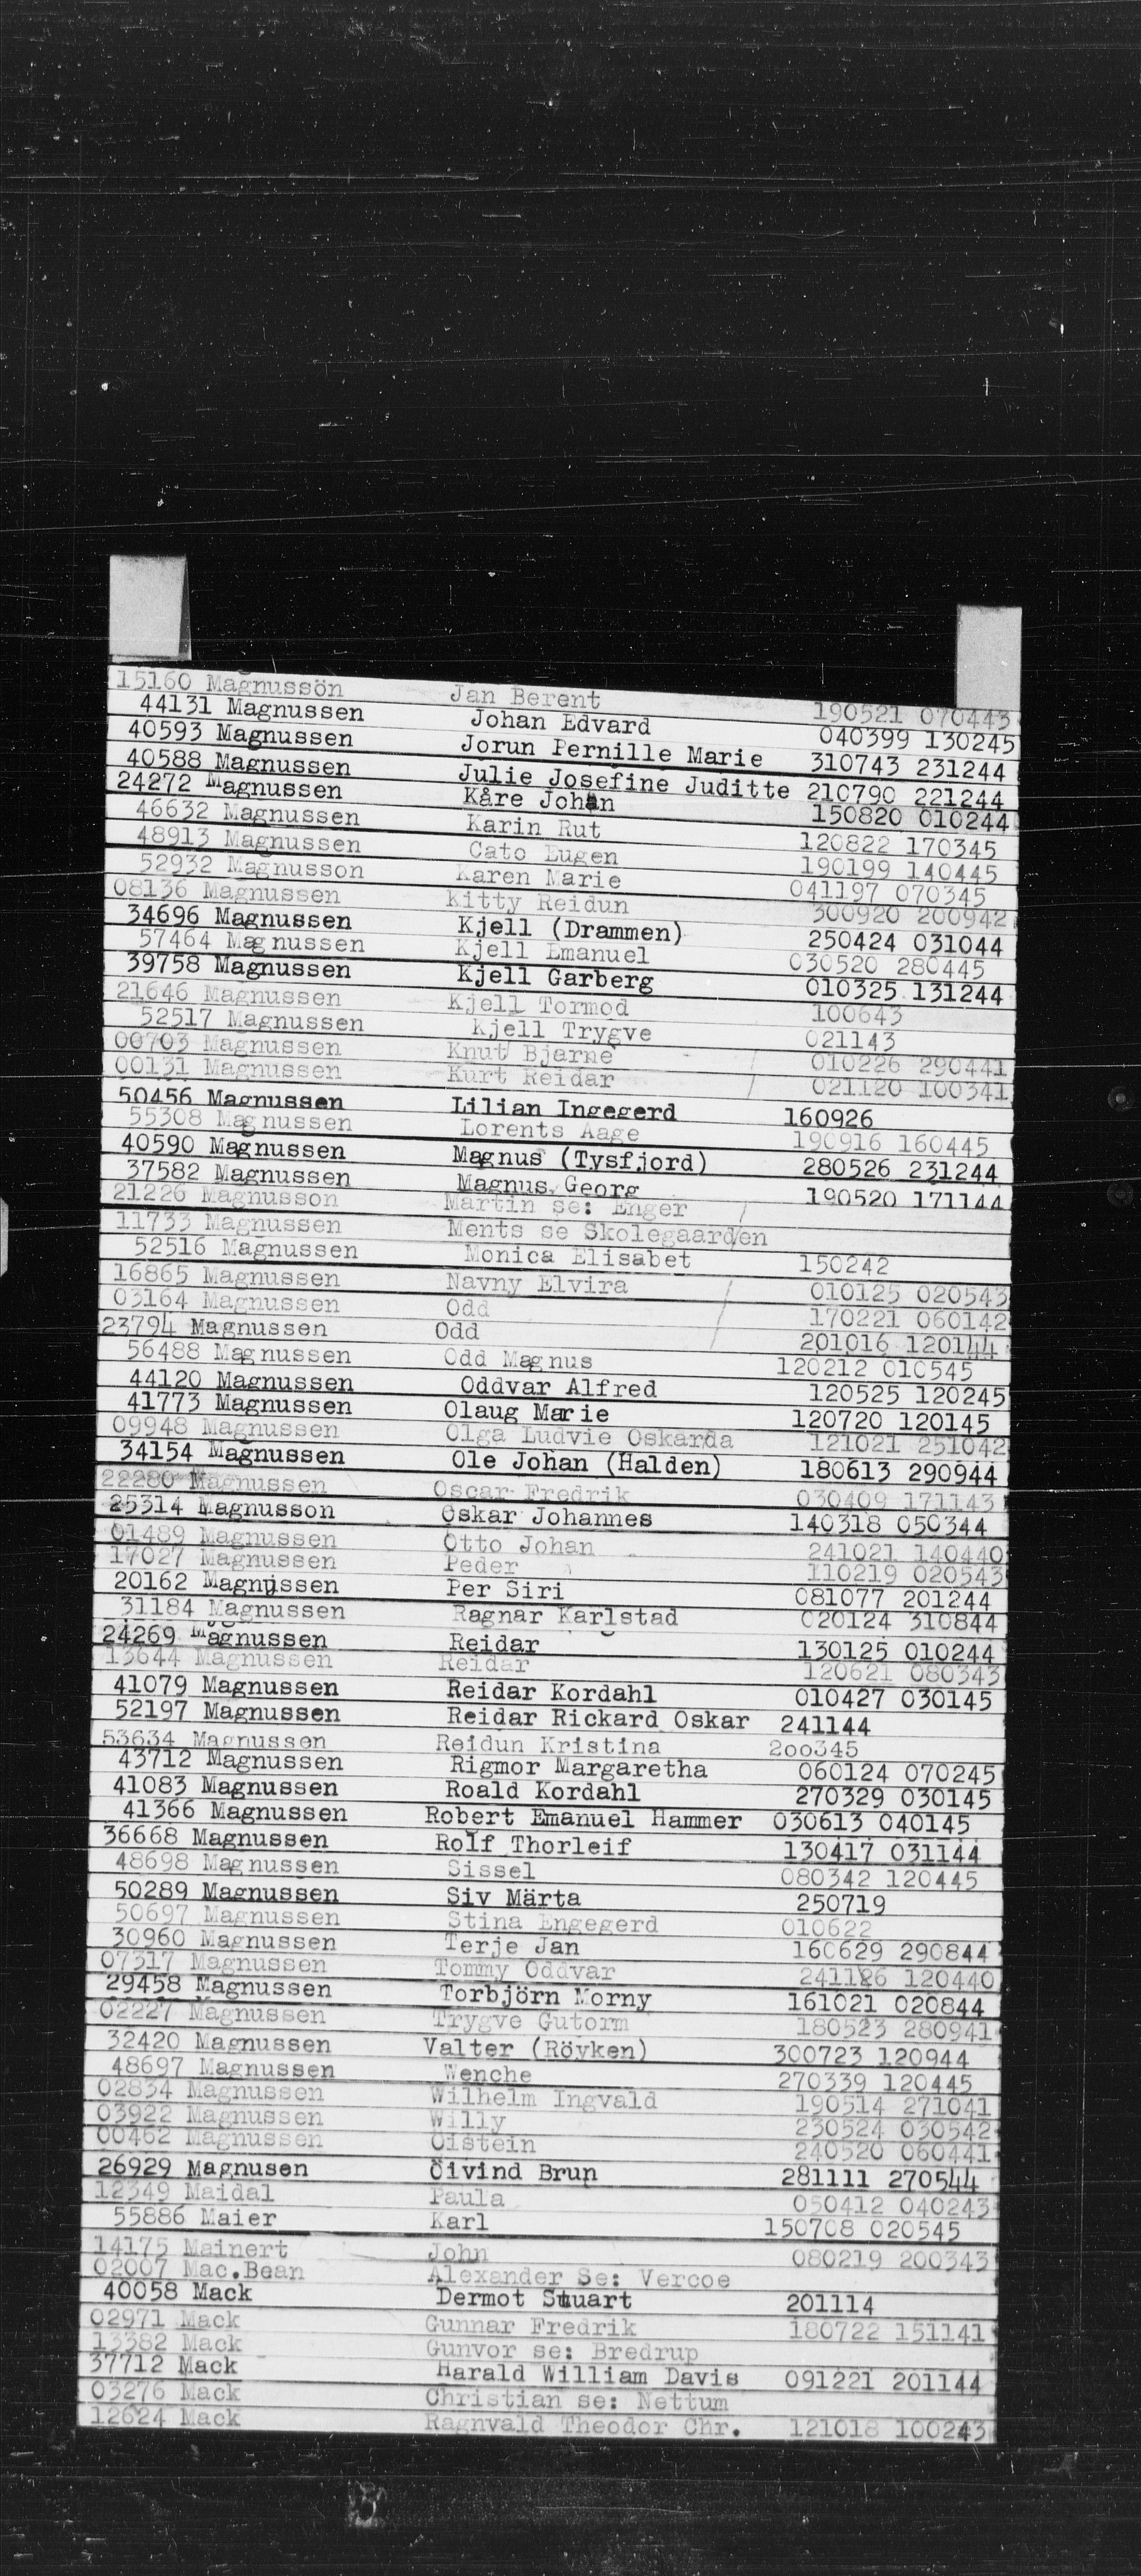 15160 Magnussön Jan Berent 190521 070443
44131 Magnussen Johan Edvard 040399 130245
40593 Magnussen Jorun Pernille Marie 310743 231244
40588 Magnussen Julie Josefine Juditte 210790 221244
24272 Magnussen Kåre Johan 150820 010244
46632 Magnussen Karin Rut 120822 170345
48913 Magnussen Cato Eugen 190199 140445
52932 Magnusson Karen Marie 041197 070345
08136 Magnussen Kitty Reidun 300920 200942
34696 Magnussen Kjell (Drammen) 250424 031044
57464 Magnussen Kjell Emanuel 030520 280445
39758 Magnussen Kjell Garberg 010325 131244
21646 Magnussen Kjell Tormod 100643
52517 Magnussen Kjell Trygve 021143
00703 Magnussen Knut Bjarne / 010226 290441
00131 Magnussen Kurt Reidar / 021120 100341
50456 Magnussen Lilian Ingegerd 160926
55308 Magnussen Lorents Aage 190916 160445
40590 Magnussen Magnus (Tysfjord) 280526 231244
37582 Magnussen Magnus Georg 190520 171144
21226 Magnusson Martin se: Enger /
11733 Magnussen Ments se Skolegaarden
52516 Magnussen Monica Elisabet 150242
16865 Magnussen Navny Elvira / 010125 020543
03164 Magnussen Odd / 170221 060142
23794 Magnussen Odd / 201016 120144
56488 Magnussen Odd Magnus 120212 010545
44120 Magnussen Oddvar Alfred 120525 120245
41773 Magnussen Olaug Marie 120720 120145
09948 Magnussen Olga Ludvie Oskarda 121021 251042
34154 Magnussen Ole Johan (Halden) 180613 290944
22280 Magnussen Oscar Fredrik 030409 171143
25314 Magnusson Oskar Johannes 140318 050344
01489 Magnussen Otto Johan 241021 140440
17027 Magnussen Peder 110219 020543
20162 Magnussen Per Siri 081077 201244
31184 Magnussen Ragnar Karlstad 020124 310844
24269 Magnussen Reidar 130125 010244
13644 Magnussen Reidar 120621 080343
41079 Magnussen Reidar Kordahl 010427 030145
52197 Magnussen Reidar Rickard Oskar 241144
53634 Magnussen Reidun Kristina 200345
43712 Magnussen Rigmor Margaretha 060124 070245
41083 Magnussen Roald Kordahl 270329 030145
41366 Magnussen Robert Emanuel Hammer 030613 040145
36668 Magnussen Rolf Thorleif 130417 031144
48698 Magnussen Sissel 080342 120445
50289 Magnussen Siv Märta 250719
50697 Magnussen Stina Engegerd 010622
30960 Magnussen Terje Jan 160629 290844
07317 Magnussen Tommy Oddvar 241126 120440
29458 Magnussen Torbjörn Morny 161021 020844
02227 Magnussen Trygve Gutorm 180523 280941
32420 Magnussen Valter (Röyken) 300723 120944
48697 Magnussen Wenche 270339 120445
02834 Magnussen Wilhelm Ingvald 190514 271041
03922 Magnussen Willy 230524 030542
00462 Magnussen Oistein 240520 060441
26929 Magnusen Öivind Brun 281111 270544
12349 Maidal Paula 050412 040243
55886 Maier Karl 150708 020545
14175 Mainert John 080219 200343
02007 Mac.Bean Alexander Se: Vercoe
40058 Mack Dermot Stuart 201114
02971 Mack Gunnar Fredrik 180722 151141
13382 Mack Gunvor se: Bredrup
37712 Mack Harald William Davis 091221 201144
03276 Mack Christian se: Nettum
12624 Mack Ragnvald Theodor Chr. 121018 100243